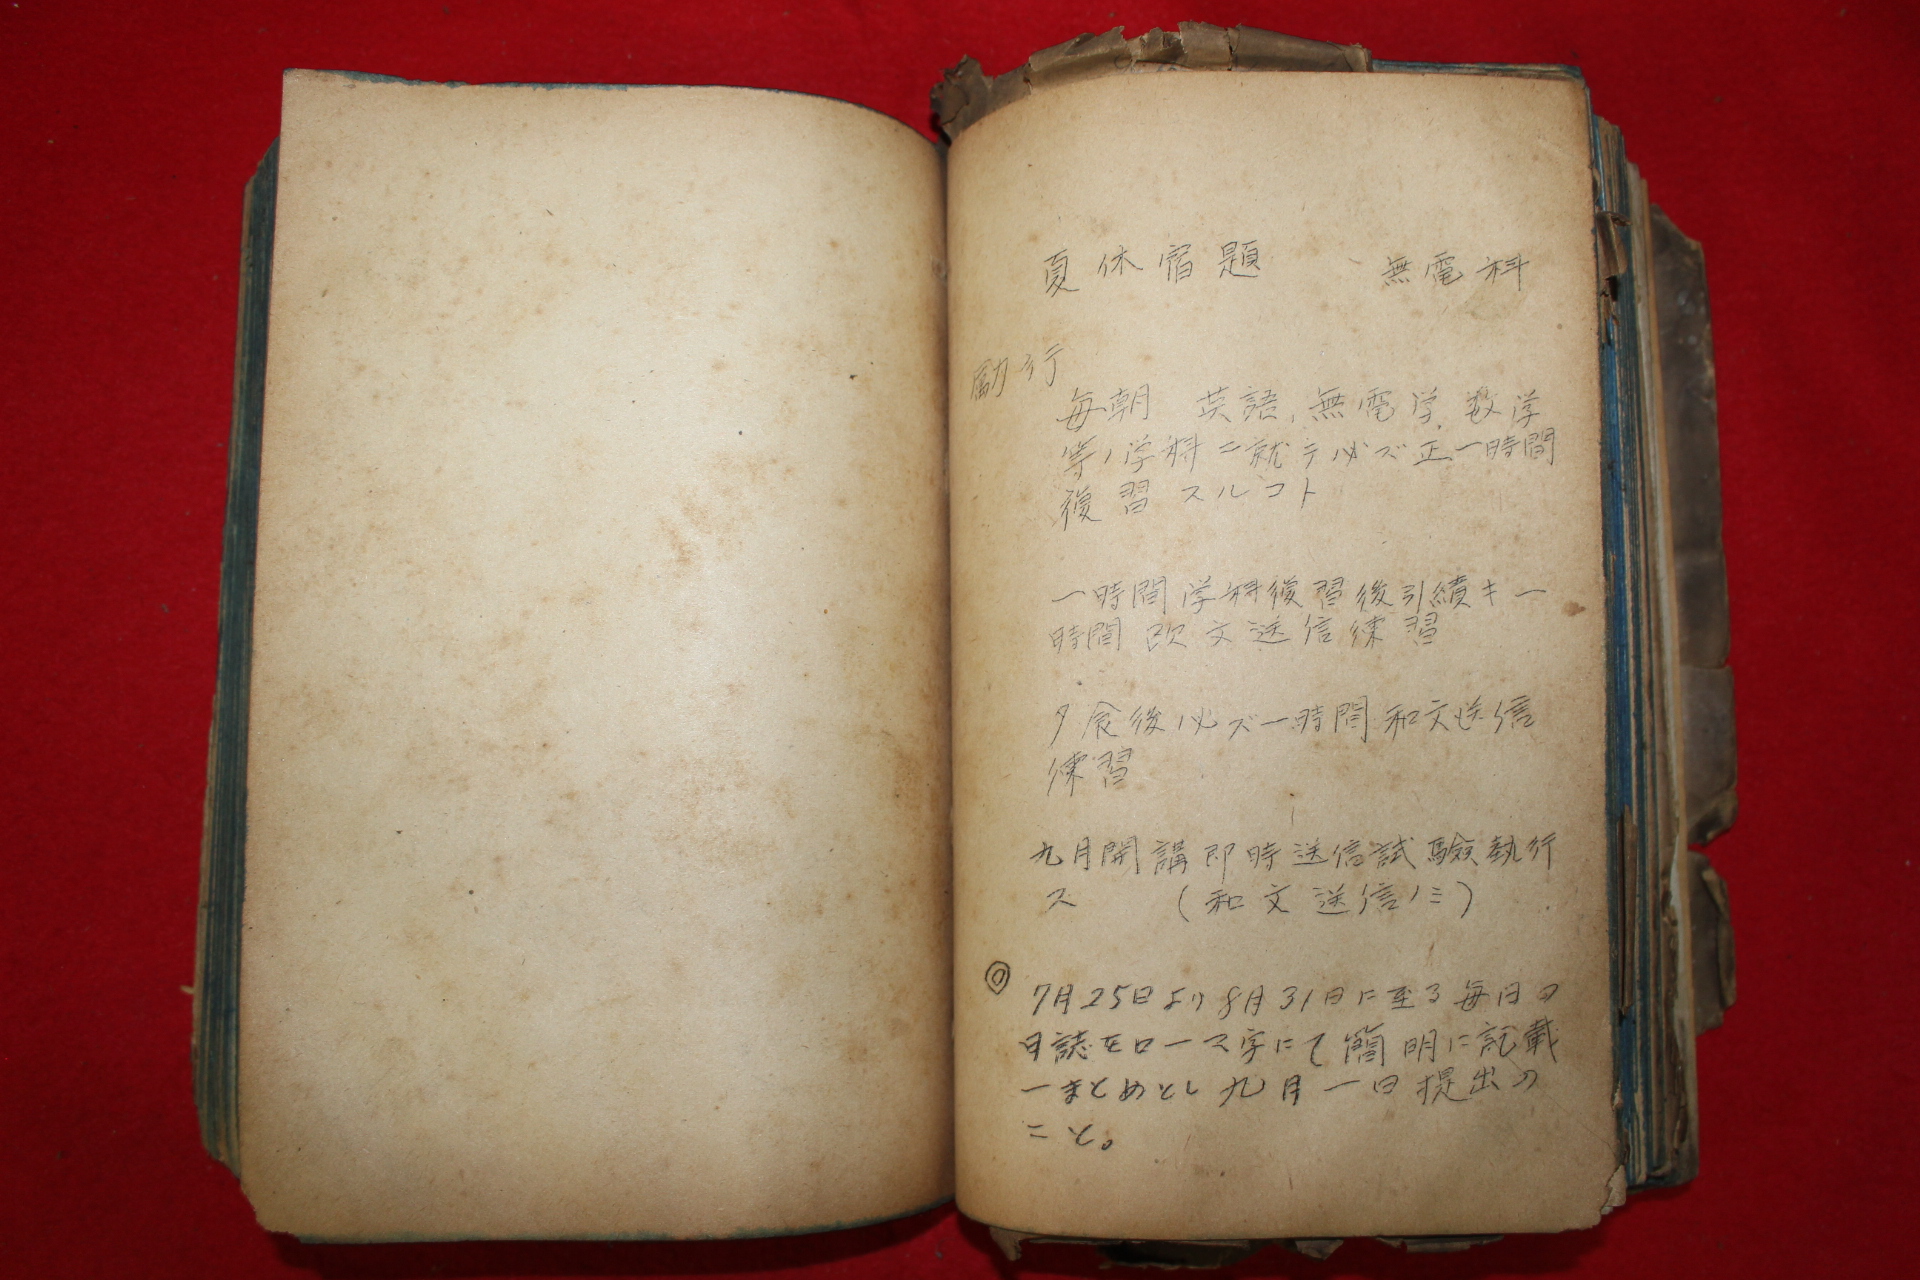 夏休宿題　無電科
励行
毎朝　英語、無電学、数学
等ノ学科ニ就テ必ズ正一時間
復習スルコト
一時間学科復習後引續キ一
時間欧文送信練習
夕食後必ズ一時間和文送信
練習
九月開講即時送信試驗執行
ス　（和文送信ノミ）
◎ 7月25日より8月31日に至る毎日の
日誌モロース字にて簡明に記載
一まとめとし九月一日提出の
こと。